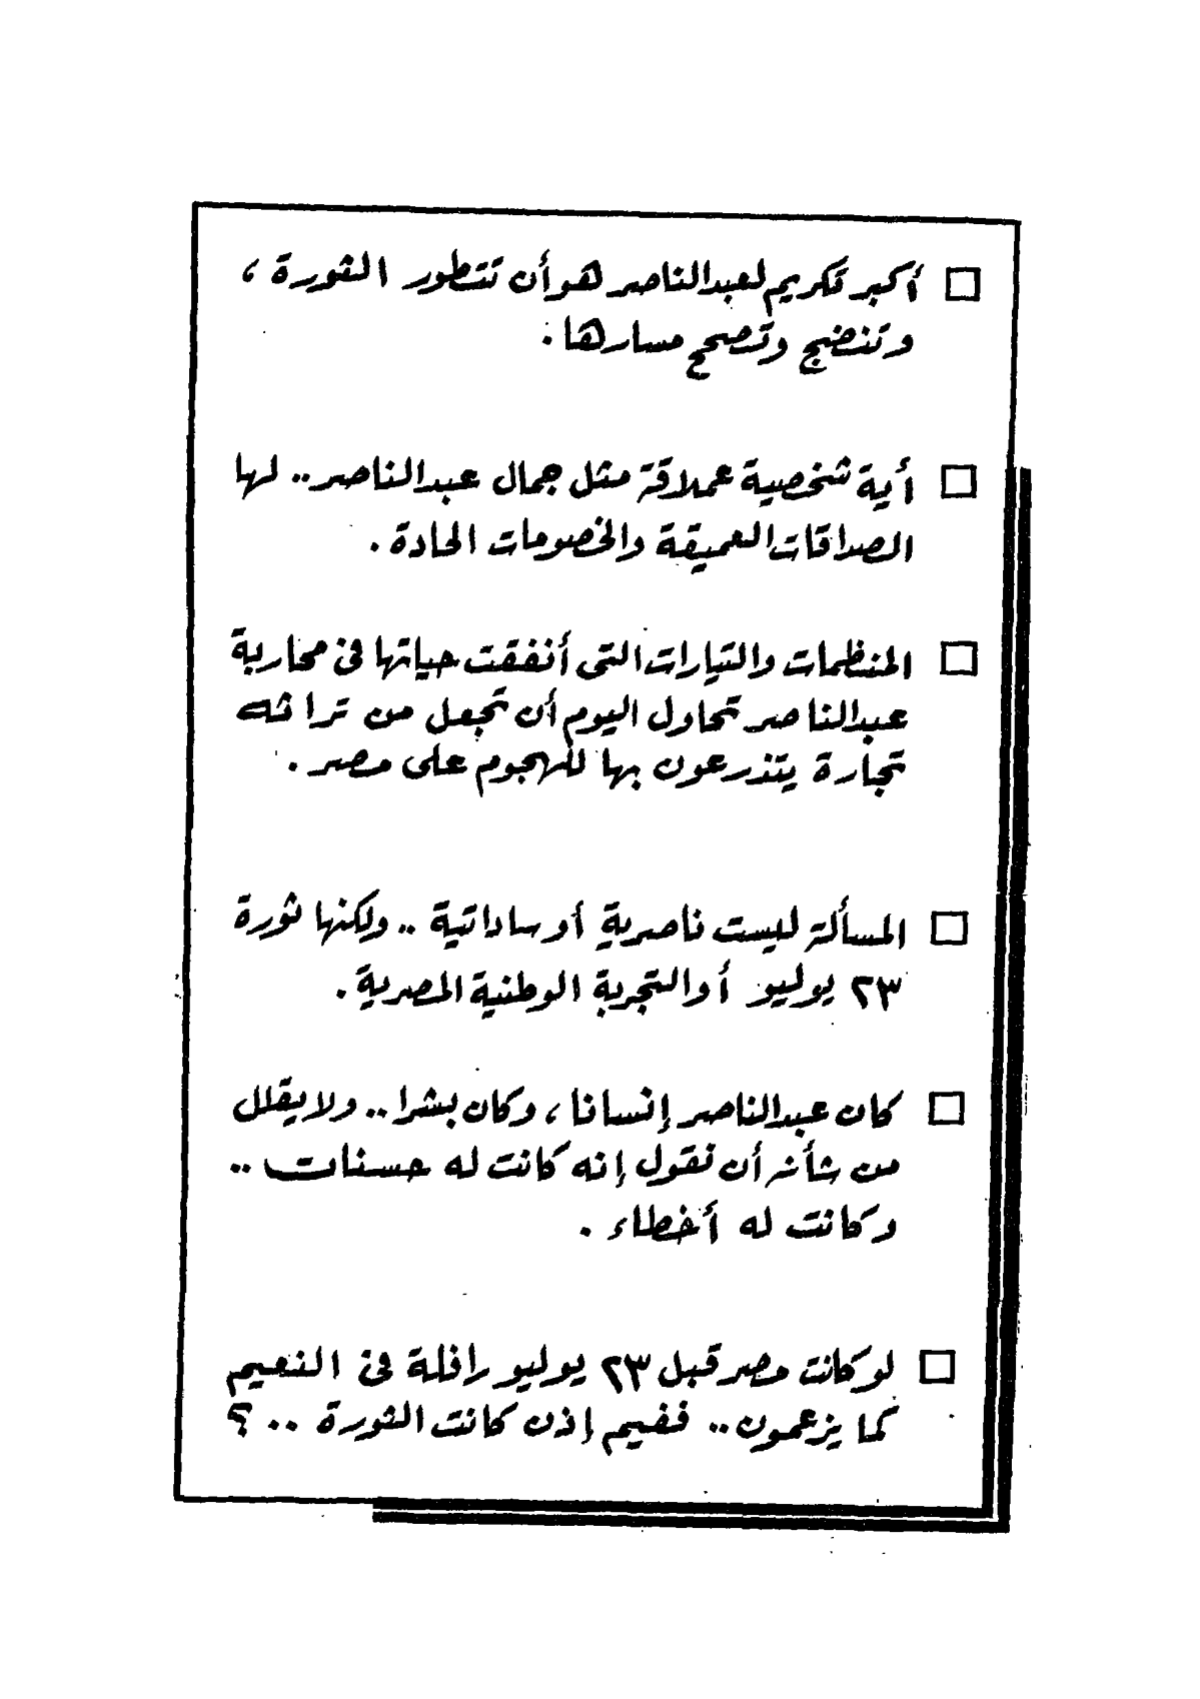 □ أكبر تكريم لعبدالناصر هو أن تتطور الثورة ،
وتنضج وتصحح مسارها .
□ أية شخصية عملاقة مثل جمال عبدالناصر .. لها
الصداقات العميقة والخصومات الحادة .
□ المنظمات والتيارات التى أنفقت حياتها فى محاربة
عبدالناصر تحاول اليوم أن تجعل من تراثه
تجارة يتذرعون بها للهجوم على مصر .
□ المسألة ليست ناصرية أو ساداتية .. ولكنها ثورة
٢٣ يوليو أو التجربة الوطنية المصرية .
□ كان عبدالناصر إنسانا ، وكان بشرا .. ولا يقلل
من شأنه أن نقول إنه كانت له حسنات ..
وكانت له أخطاء .
□ لو كانت مصر قبل ٢٣ يوليو رافلة فى النعيم
كما يزعمون .. ففيم إذن كانت الثورة .. ؟